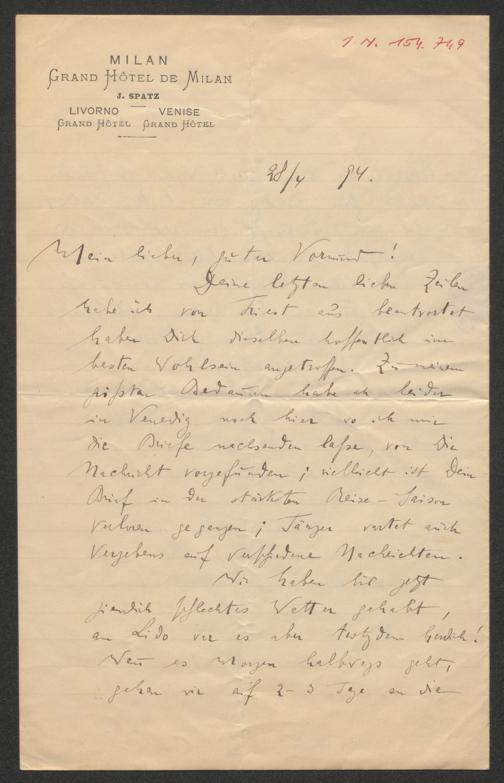 I N. 154.749
MILAN
GRAND HÔTEL DE MILAN
J. SPATZ
LIVORNO VENISE
GRAND HÔTEL GRAND HÔTEL
28/4 94.
Mein lieber, guter Vormund!
Deine letzten lieben Zeilen
habe ich von Triest aus beantwortet
haben Dich dieselben hoffentlich im
besten Wohlsein angetroffen. Zu meinem
größten Bedauern habe ich leider
in Venedig noch hier wo ich mir
die Briefe nachsenden laße, von Dir
Nachricht vorgefunden; vielleicht ist Dein
Brief in der stärksten Reise-Saison
verloren gegangen; wartet auch
vergebens auf verschiedene Nachrichten.
Wir haben bis jetzt
ziemlich schlechtes Wetter gehabt,
am Lido war es aber trotzdem herrlich!
Wenn es Morgen halbwegs geht,
gehen wir auf 2-3 Tage an die